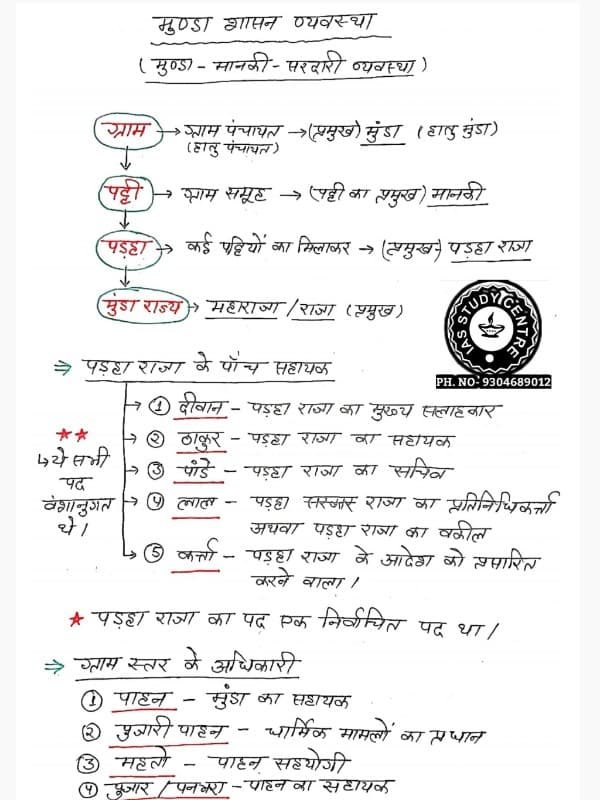 मुण्डा शासन व्यवस्था
(मुण्डा - मानकी - सरदारी व्यवस्था)
ग्राम → ग्राम पंचायत → (प्रमुख) मुंडा (हातु मुंडा)
(हातु पंचायत)
पट्टी → ग्राम समूह → (पट्टी का प्रमुख) मानकी
पड़हा → कई पट्टियों का मिलाकर → (प्रमुख-) पड़हा राजा
मुंडा राज्य → महाराजा / राजा (प्रमुख)
IAS STUDY CENTRE
PH. NO- 9304689012
⇒ पड़हा राजा के पाँच सहायक
→ ① दीवान - पड़हा राजा का मुख्य सलाहकार
→ ② ठाकुर - पड़हा राजा का सहायक
→ ③ पांडे - पड़हा राजा का सचिव
→ ④ लाल - पड़हा राजा का प्रतिनिधिकर्त्ता
अथवा पड़हा राजा का वकील
→ ⑤ कर्त्ता - पड़हा राजा के आदेश को प्रसारित
करने वाला।
★★
↳ ये सभी
पद
वंशानुगत
थे।
★ पड़हा राजा का पद एक निर्वाचित पद था।
⇒ ग्राम स्तर के अधिकारी
① पाहन - मुंडा का सहायक
② पुजारी पाहन - धार्मिक मामलों का प्रधान
③ महतो - पाहन सहयोगी
④ पुजार / पनभरा - पाहन का सहायक